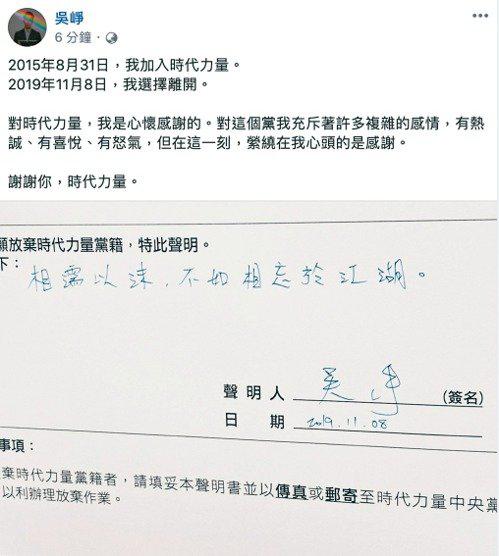 吳崢
6 分鐘・
2015年8月31日，我加入時代力量。
2019年11月8日，我選擇離開。
對時代力量，我是心懷感謝的。對這個黨我充斥著許多複雜的感情，有熱
誠、有喜悅、有怒氣，但在這一刻，縈繞在我心頭的是感謝。
謝謝你，時代力量。
願放棄時代力量黨籍，特此聲明。
下：
相濡以沫，不如相忘於江湖。
聲明人 吳崢 (簽名)
日期 2019.11.08
事項：
棄時代力量黨籍者，請填妥本聲明書並以傳真或郵寄至時代力量中央黨
以利辦理放棄作業。